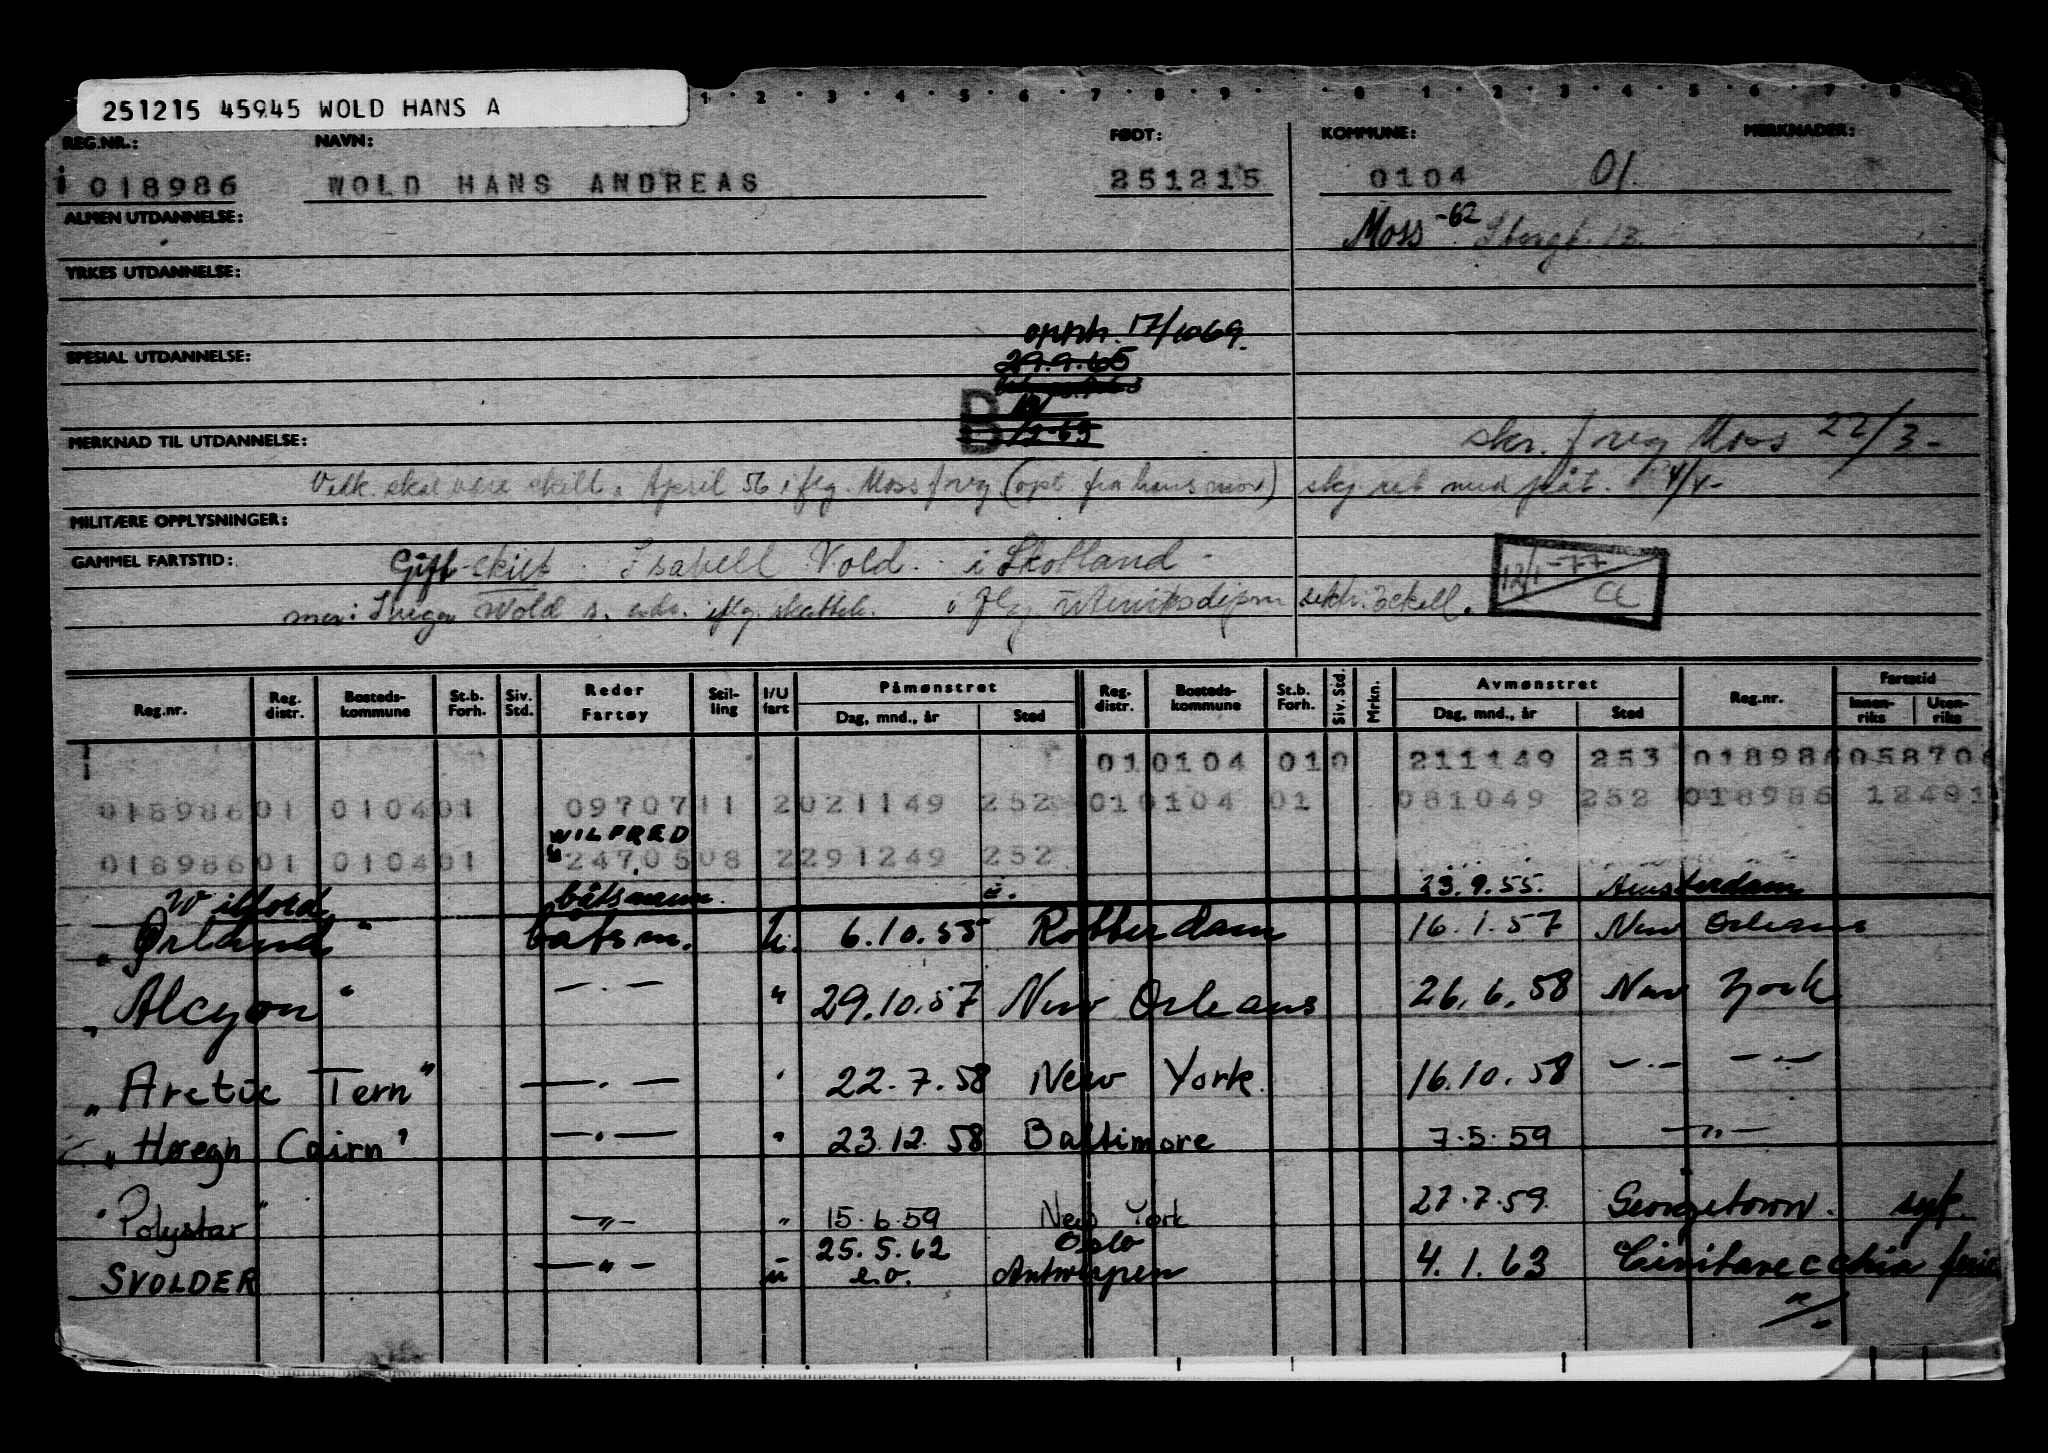 251215 45945 WOLD HANS A
1 · 2 · 3 · 4 · 5 · 6 · 7 · 8 · 9 · · 0 · 1 · 2 · 3 · 4 · 5 · 6 · 7 · 8
REG.NR.: NAVN: FØDT: KOMMUNE: MERKNADER:
018986 WOLD HANS ANDREAS 251215 0104 01.
ALMEN UTDANNELSE:
Moss -62
YRKES UTDANNELSE:
opph. 17/10 69.
SPESIAL UTDANNELSE:
29.9.65
B
MERKNAD TIL UTDANNELSE:
skr. f reg Moss 22/3-
Vedk. skal være skilt. April 56 i flg. Moss f reg (opl fra hans mor)
MILITÆRE OPPLYSNINGER:
GAMMEL FARTSTID:
Gift-skilt Isabell Vold i Skotland -
12/1-77
mor: Inga Wold s. adr. iflg.
Reg.nr. Reg. distr. Bosteds-kommune St.b. Forh. Siv. Std. Reder Fartøy Stil-ling I/U fart Påmønstret Dag, mnd., år Sted Reg. distr. Bosteds-kommune St.b. Forh. Siv. Std. Mrkn. Avmønstret Dag, mnd., år Sted Reg.nr. Fartstid Innen-riks Uten-riks
01 0104 01 0 211149 253 018986 058706
018986 01 0104 01 0970711 2 021149 252 01 0104 01 081049 252 018986 18481
WILFRED
018986 01 0104 01 2470508 2 291249 252
Wilford båtsmann 23.9.55. Amsterdam
" Ørland " båtsm. u. 6.10.55 Rotterdam 16.1.57 New Orleans
" Alcyon " — . — " 29.10.57 New Orleans 26.6.58 New York
" Arctic Tern " — . — " 22.7.58 New York. 16.10.58 — . — — . —
" Høegh Cairn " — . — " 23.12.58 Baltimore 7.5.59 — " —
" Polystar " — " — " 15.6.59 New York 27.7.59. Georgetown. syk.
25.5.62 Oslo
SVOLDER — " — u e.o. Antwerpen 4.1.63 Civitavecchia